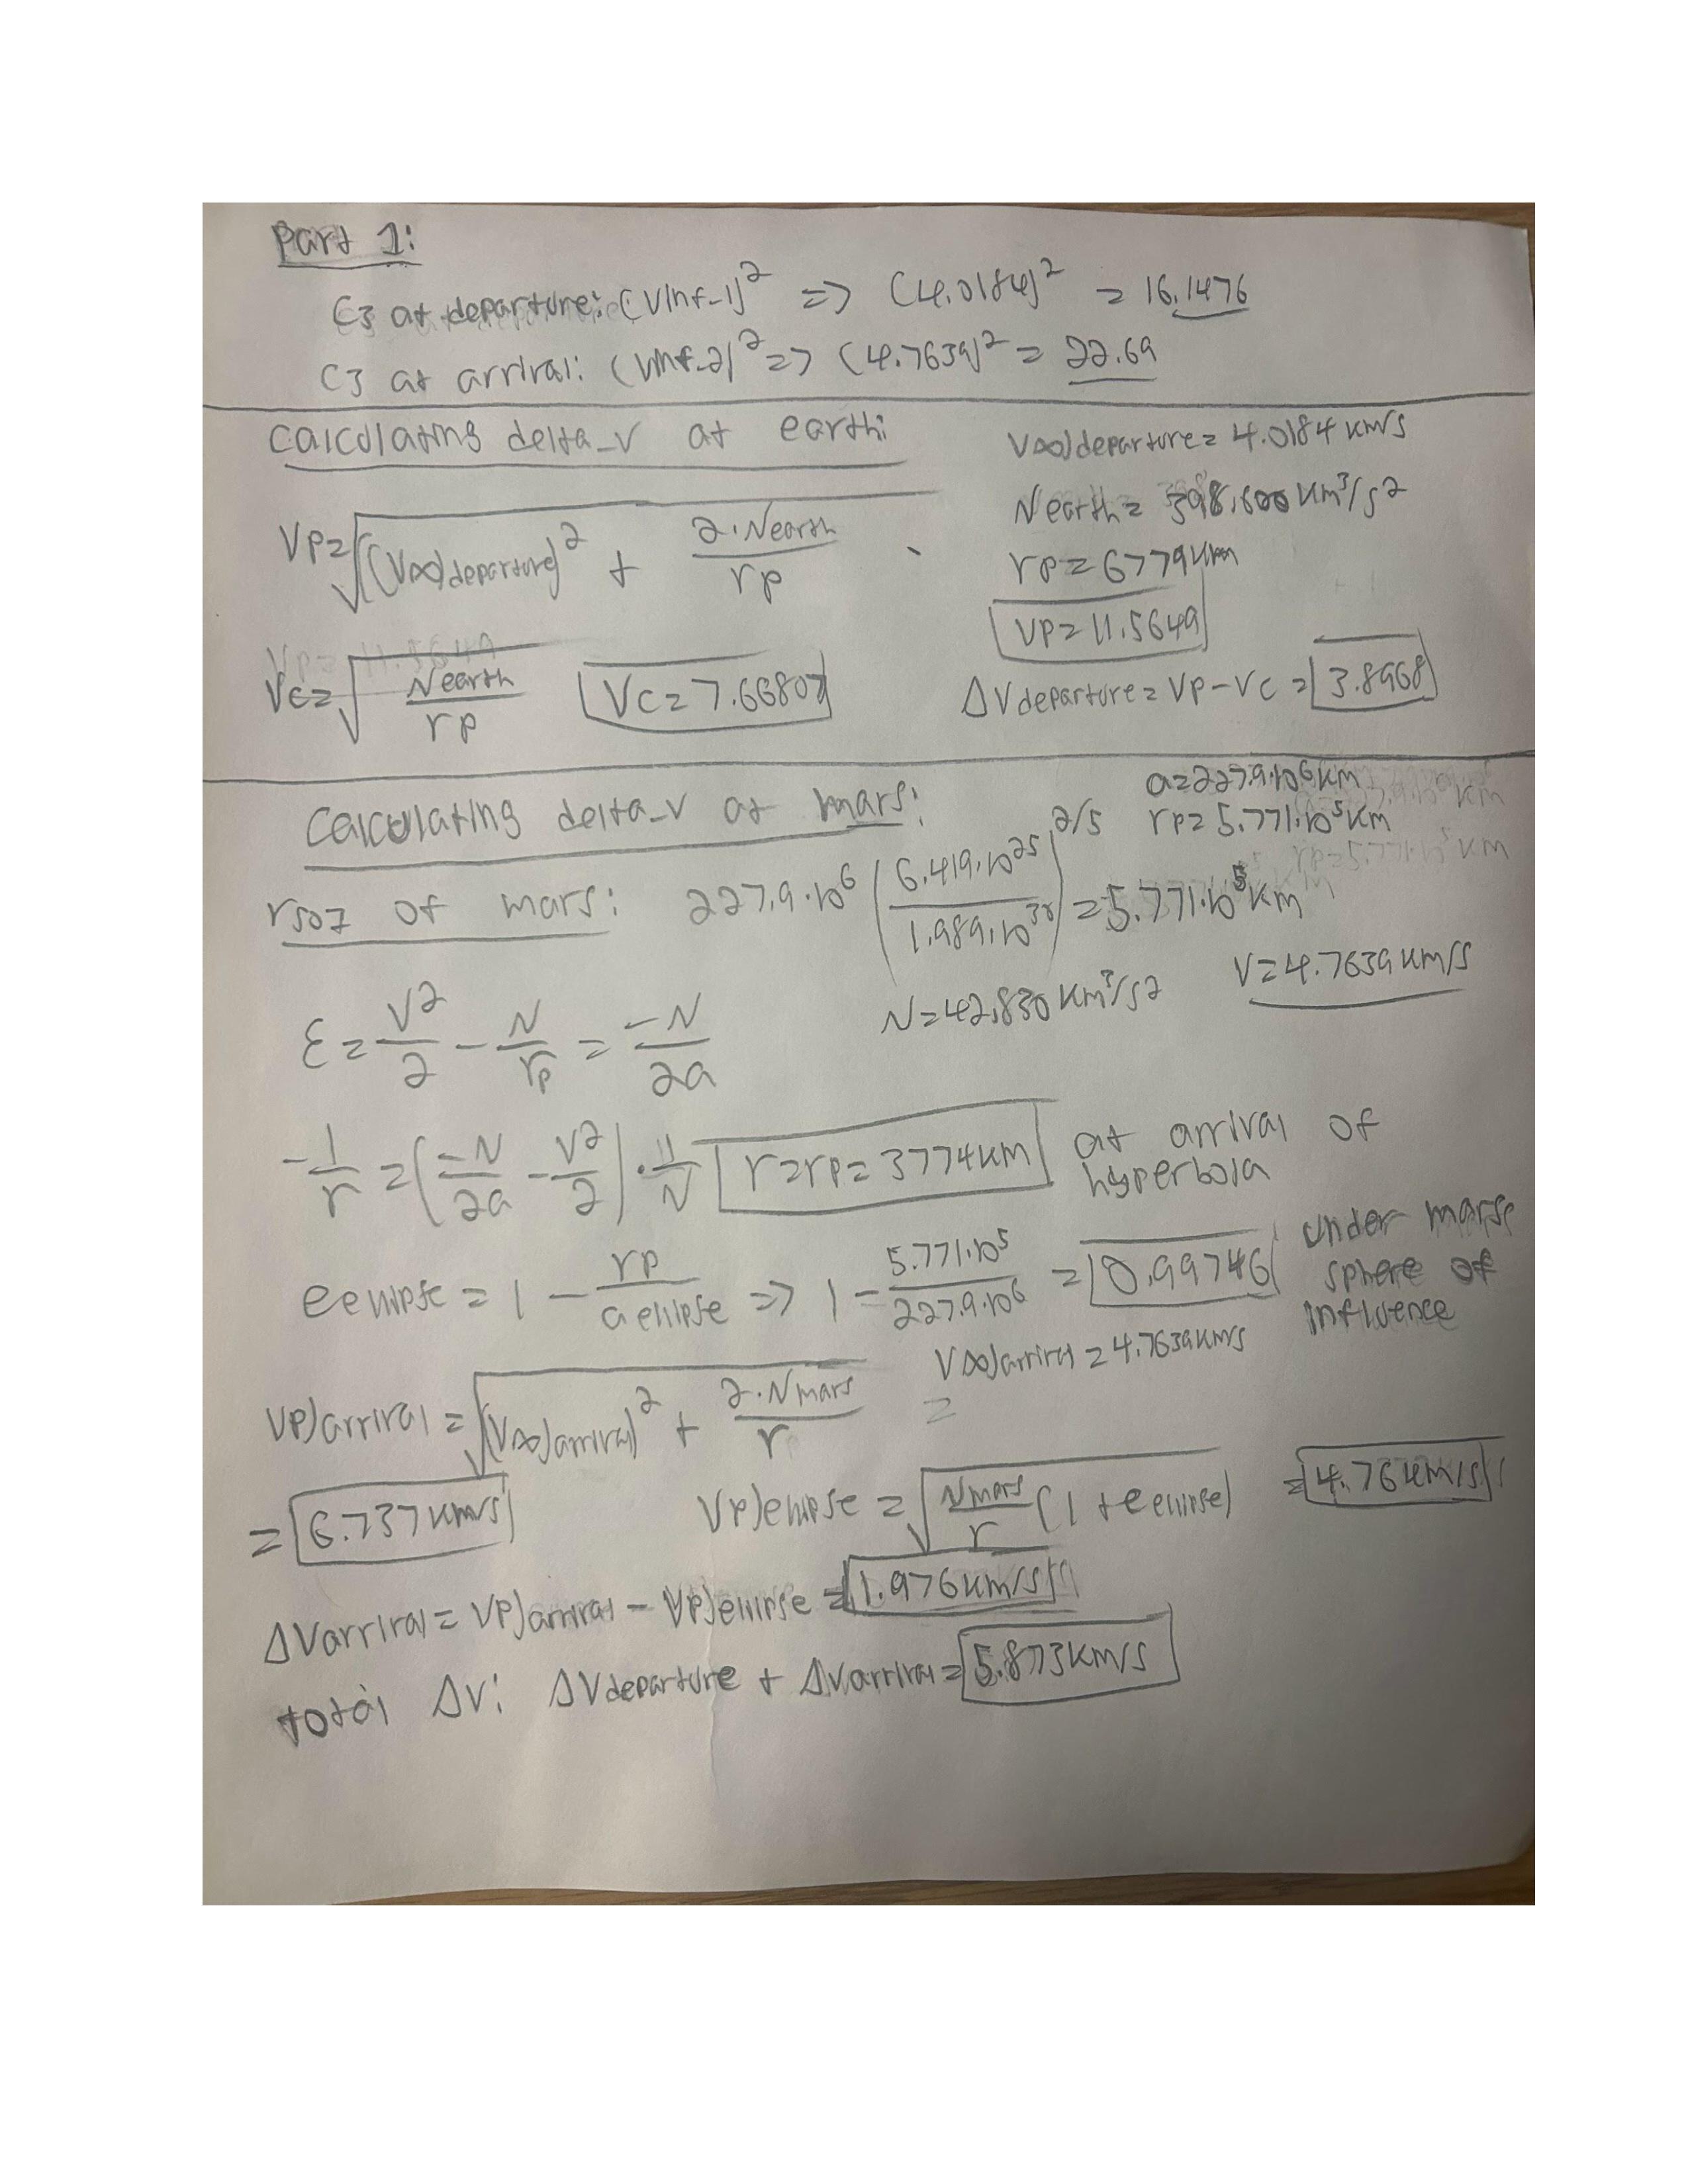 Part 1:
C3 at departure: (Vinf-1)² => (4.0184)² = 16.1476
C3 at arrival: (Vinf-2)² => (4.7639)² = 22.69
Calculating delta_v at earth:
V∞)departure = 4.0184 km/s
Vp = √((V∞)departure)² + 2·Nearth/rp)
Nearth = 398,600 km³/s²
rp = 6779 km
Vp = 11.5649
Vc = √(Nearth/rp) Vc = 7.66807
ΔVdeparture = Vp - Vc = 3.8968
Calculating delta_v at mars:
a = 227.9·10⁶ km
rp = 5.771·10⁵ km
rsoI of mars: 227.9·10⁶ (6.419·10²⁵/1.989·10³⁰)^2/5 = 5.771·10⁵ km
N = 42,830 km³/s² V = 4.7639 km/s
ε = V²/2 - N/rp = -N/2a
-1/r = (-N/2a - V²/2)·11/N r = rp = 3774 km at arrival of hyperbola
eellipse = 1 - rp/aellipse => 1 - 5.771·10⁵/227.9·10⁶ = 0.99746 under marse sphere of influence
V∞)arrival = 4.7639 km/s
Vp)arrival = √((V∞)arrival)² + 2·Nmars/r) =
= 6.737 km/s
Vp)ellipse = √(Nmars/r (1 + eellipse)) = 4.76 km/s
ΔVarrival = Vp)arrival - Vp)ellipse = 1.976 km/s
total ΔV: ΔVdeparture + ΔVarrival = 5.873 km/s